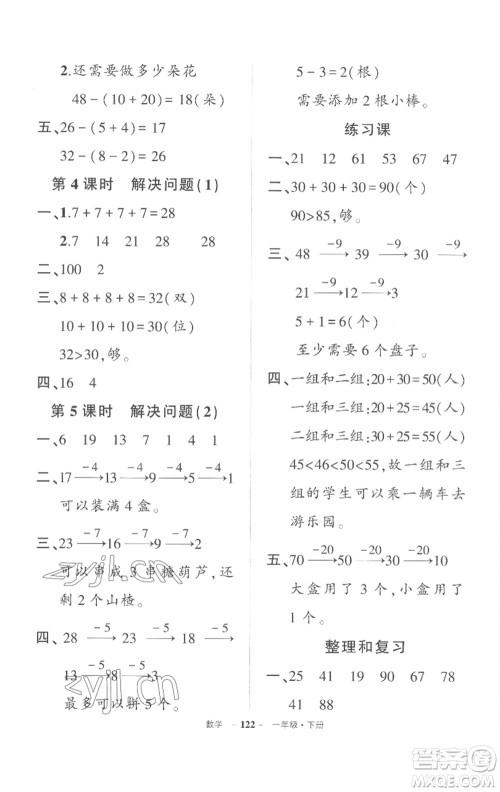 2.还需要做多少朵花
48-(10+20)=18(朵)
五、26-(5+4)=17
32-(8-2)=26
第4课时 解决问题(1)
一、1.7+7+7+7=28
2.7 14 21 28 28
二、100 2
三、8+8+8+8=32(双)
10+10+10=30(位)
32>30,够。
四、16 4
第5课时 解决问题(2)
一、6 19 13 7 6 71
二、17 -4→ 13 -4→ 9 -4→ 5 -4→ 1
可以装满4盒。
三、23 -7→ 16 -7→ 9 -7→ 2
可以串成3串糖葫芦,还
剩2个山楂。
四、28 -5→ 23 -5→ 18 -5→
13 -5→ 8 -5→ 3
最多可以拼5个。
5-3=2(根)
需要添加2根小棒。
练习课
一、21 12 61 67 47
二、30+30+30=90(个)
90>85,够。
三、48 -9→ 39 -9→ 30 -9→
21 -9→ 12 -9→ 3
5+1=6(个)
至少需要6个盘子。
四、一组和二组:20+30=50(人)
一组和三组:20+25=45(人)
二组和三组:30+25=55(人)
45<46<55,故一组和三
组的学生可乘一辆车去
游乐园。
五、70 -20→ 50 -20→ 30 -20→ 10
大盒用了3个,小盒用了
1个。
整理和复习
一、25 41 19 90 67 78
41 88
数学 -122- 一年级·下册
zyjl.cn
zyjl.cn
答案圈
MXQE.COM